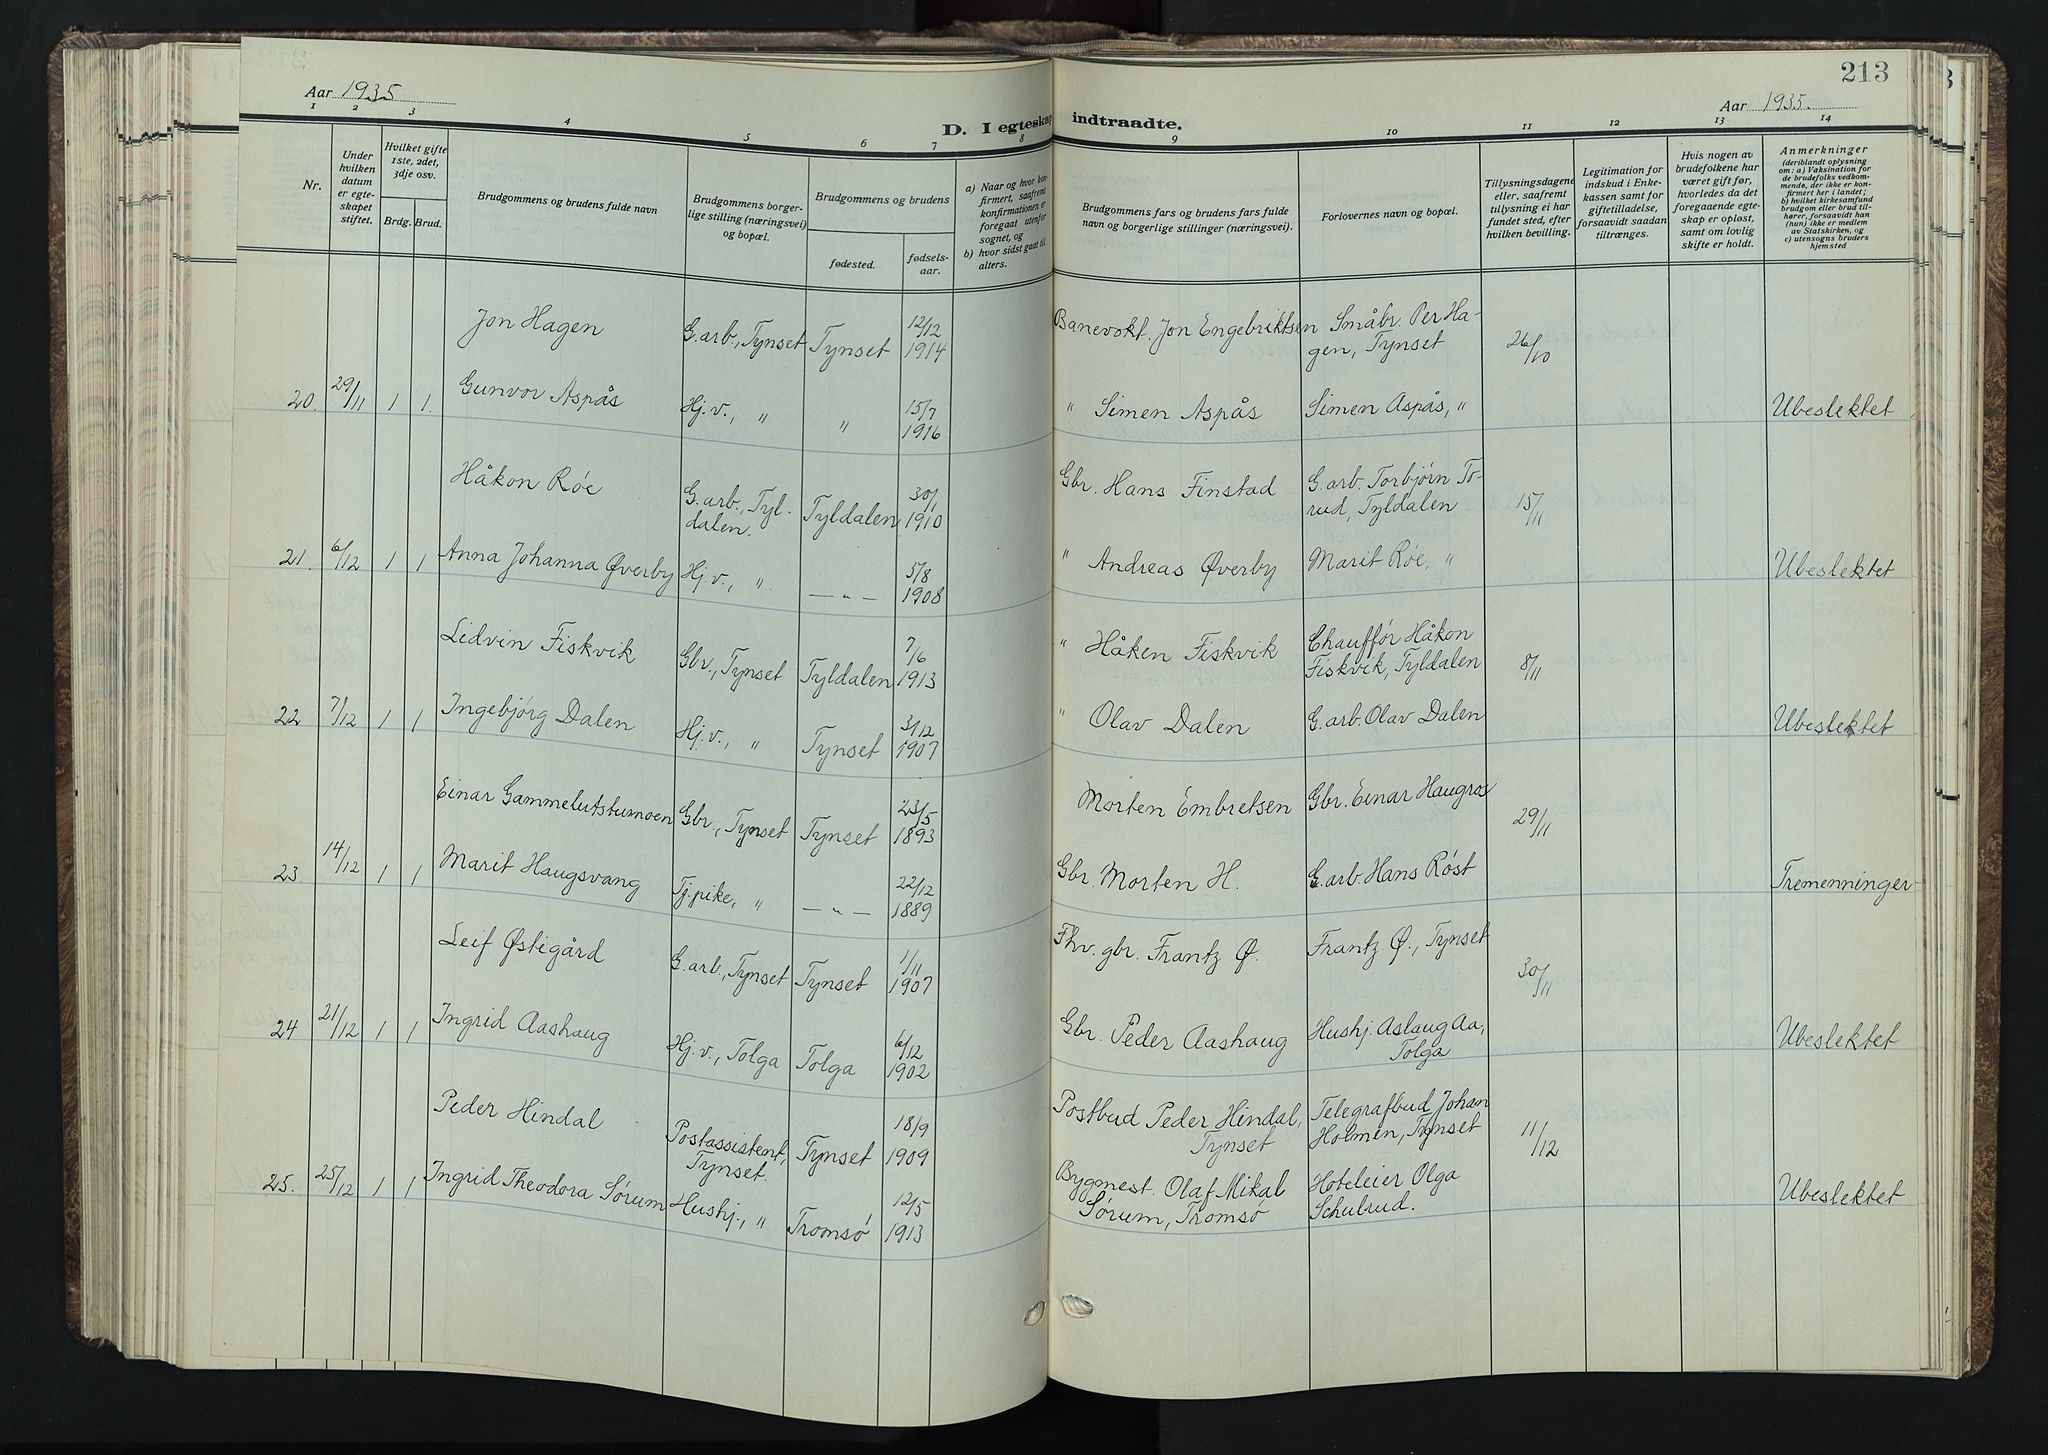 213
Aar 1935
Aar 1935.
D. I egteskap indtraadte.
1 2 3 4 5 6 7 8 9 10 11 12 13 14
Nr.
Under hvilken datum er egteskapet stiftet.
Hvilket gifte 1ste, 2det, 3dje osv.
Brdg. Brud.
Brudgommens og brudens fulde navn
Brudgommens borgerlige stilling (næringsvei) og bopæl.
Brudgommens og brudens
fødested.
fødselsaar.
a) Naar og hvor konfirmert, saafremt konfirmationen er foregaat utenfor sognet, og
b) hvor sidst gaat til alters.
Brudgommens fars og brudens fars fulde navn og borgerlige stillinger (næringsvei).
Forlovernes navn og bopæl.
Tillysningsdagene eller, saafremt tillysning ei har fundet sted, efter hvilken bevilling.
Legitimation for indskud i Enkekassen samt for giftetilladelse, forsaavidt saadan tiltrænges.
Hvis nogen av brudefolkene har været gift før, hvorledes da det foregaaende egteskap er opløst, samt om lovlig skifte er holdt.
Anmerkninger
(deriblandt oplysning om: a) Vaksination for de brudefolks vedkommende, der ikke er konfirmert her i landet; b) hvilket kirkesamfund brudgom eller brud tilhører, forsaavidt han (hun) ikke er medlem av Statskirken, og c) utensogns bruders hjemsted
Jon Hagen G. arb., Tynset Tynset 12/12 1914 Banevokt. Jon Engebriktsen Småbr. Per Hagen, Tynset 26/10
20. 29/11 1 1. Gunvor Aspås Hj.v., " " 15/7 1916 " Simen Aspås Simen Aspås, " Ubeslektet
Håkon Røe G. arb., Tyldalen. Tyldalen 30/1 1910 Gbr. Hans Finstad G. arb. Torbjørn Torud, Tyldalen 15/11
21. 6/12 1 1 Anna Johanna Øverby Hj.v., " — " — 5/8 1908 " Andreas Øverby Marit Røe, " Ubeslektet
Lidvin Fiskvik Gbr., Tynset Tyldalen 7/6 1913 " Håken Fiskvik Chauffør Håkon Fiskvik, Tyldalen 8/11
22 7/12 1 1 Ingebjørg Dalen Hj.v., " Tynset 3/12 1907 " Olav Dalen G. arb. Olav Dalen Ubeslektet
Einar Gammelutstumoen Gbr., Tynset Tynset 23/5 1893 Morten Embretsen Gbr. Einar Haugros 29/11
23. 14/12 1 1 Marit Haugsvang Tj.pike, " — " — 22/12 1889 Gbr. Morten H. G. arb. Hans Røst Tremenninger
Leif Østigård G. arb., Tynset Tynset 1/11 1907 Fhv. gbr. Frantz Ø. Frantz Ø., Tynset 30/11
24 21/12 1 1 Ingrid Aashaug Hj.v., Tolga Tolga 6/12 1902 Gbr. Peder Aashaug Hushj. Aslaug Aa, Tolga Ubeslektet
Peder Hindal Postassistent, Tynset. Tynset 18/9 1909 Postbud Peder Hindal, Tynset Telegrafbud Johan Holmen, Tynset 11/12
25. 25/12 1 1 Ingrid Theodora Sørum Hushj., " Tromsø 12/5 1913 Bygmest. Olaf Mikal Sørum, Tromsø Hoteleier Olga Schulrud. Ubeslektet